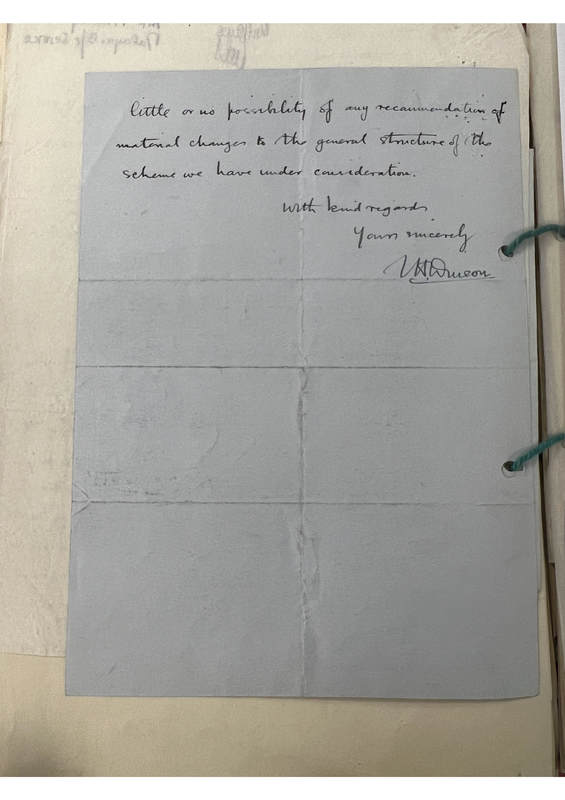 little or no possibility of any recommendation of
material changes to the general structure of the
scheme we have under consideration.
With kind regards
Yours sincerely